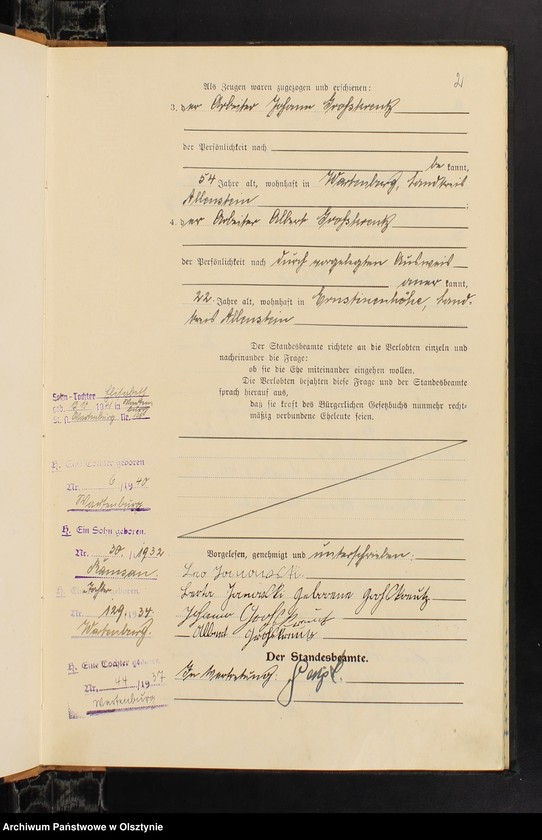 2
Als Zeugen waren zugezogen und erschienen:
3. der Arbeiter Johann Großkreutz
der Persönlichkeit nach
be kannt,
54 Jahre alt, wohnhaft in Wartenburg, Landkreis
Allenstein
4. der Arbeiter Albert Großkreutz
der Persönlichkeit nach durch vorgelegten Ausweis
aner kannt,
22 Jahre alt, wohnhaft in Ernstinenhöhe, Land-
kreis Allenstein
Der Standesbeamte richtete an die Verlobten einzeln und
nacheinander die Frage:
ob sie die Ehe miteinander eingehen wollen.
Die Verlobten bejahten diese Frage und der Standesbeamte
sprach hierauf aus,
daß sie kraft des Bürgerlichen Gesetzbuchs nunmehr recht-
mäßig verbundene Eheleute seien.
Vorgelesen, genehmigt und unterschrieben:
Leo Janowski
Berta Janowski Geborene Großkreutz
Johann Großkreutz
Albert Großkreutz
Der Standesbeamte.
In Vertretung:
Sohn - Tochter Elisabeth
geb. 19 in
St. A. Wartenburg Nr.
H. Eine Tochter geboren
Nr. 6 /1940
Wartenburg
H. Ein Sohn geboren.
Nr. 30. /1932
Ramsau.
H. Ein Tochter geboren.
Nr. 129. 1934
Wartenburg.
H. Eine Tochter geboren
Nr. 44 /1937
Wartenburg
Archiwum Państwowe w Olsztynie